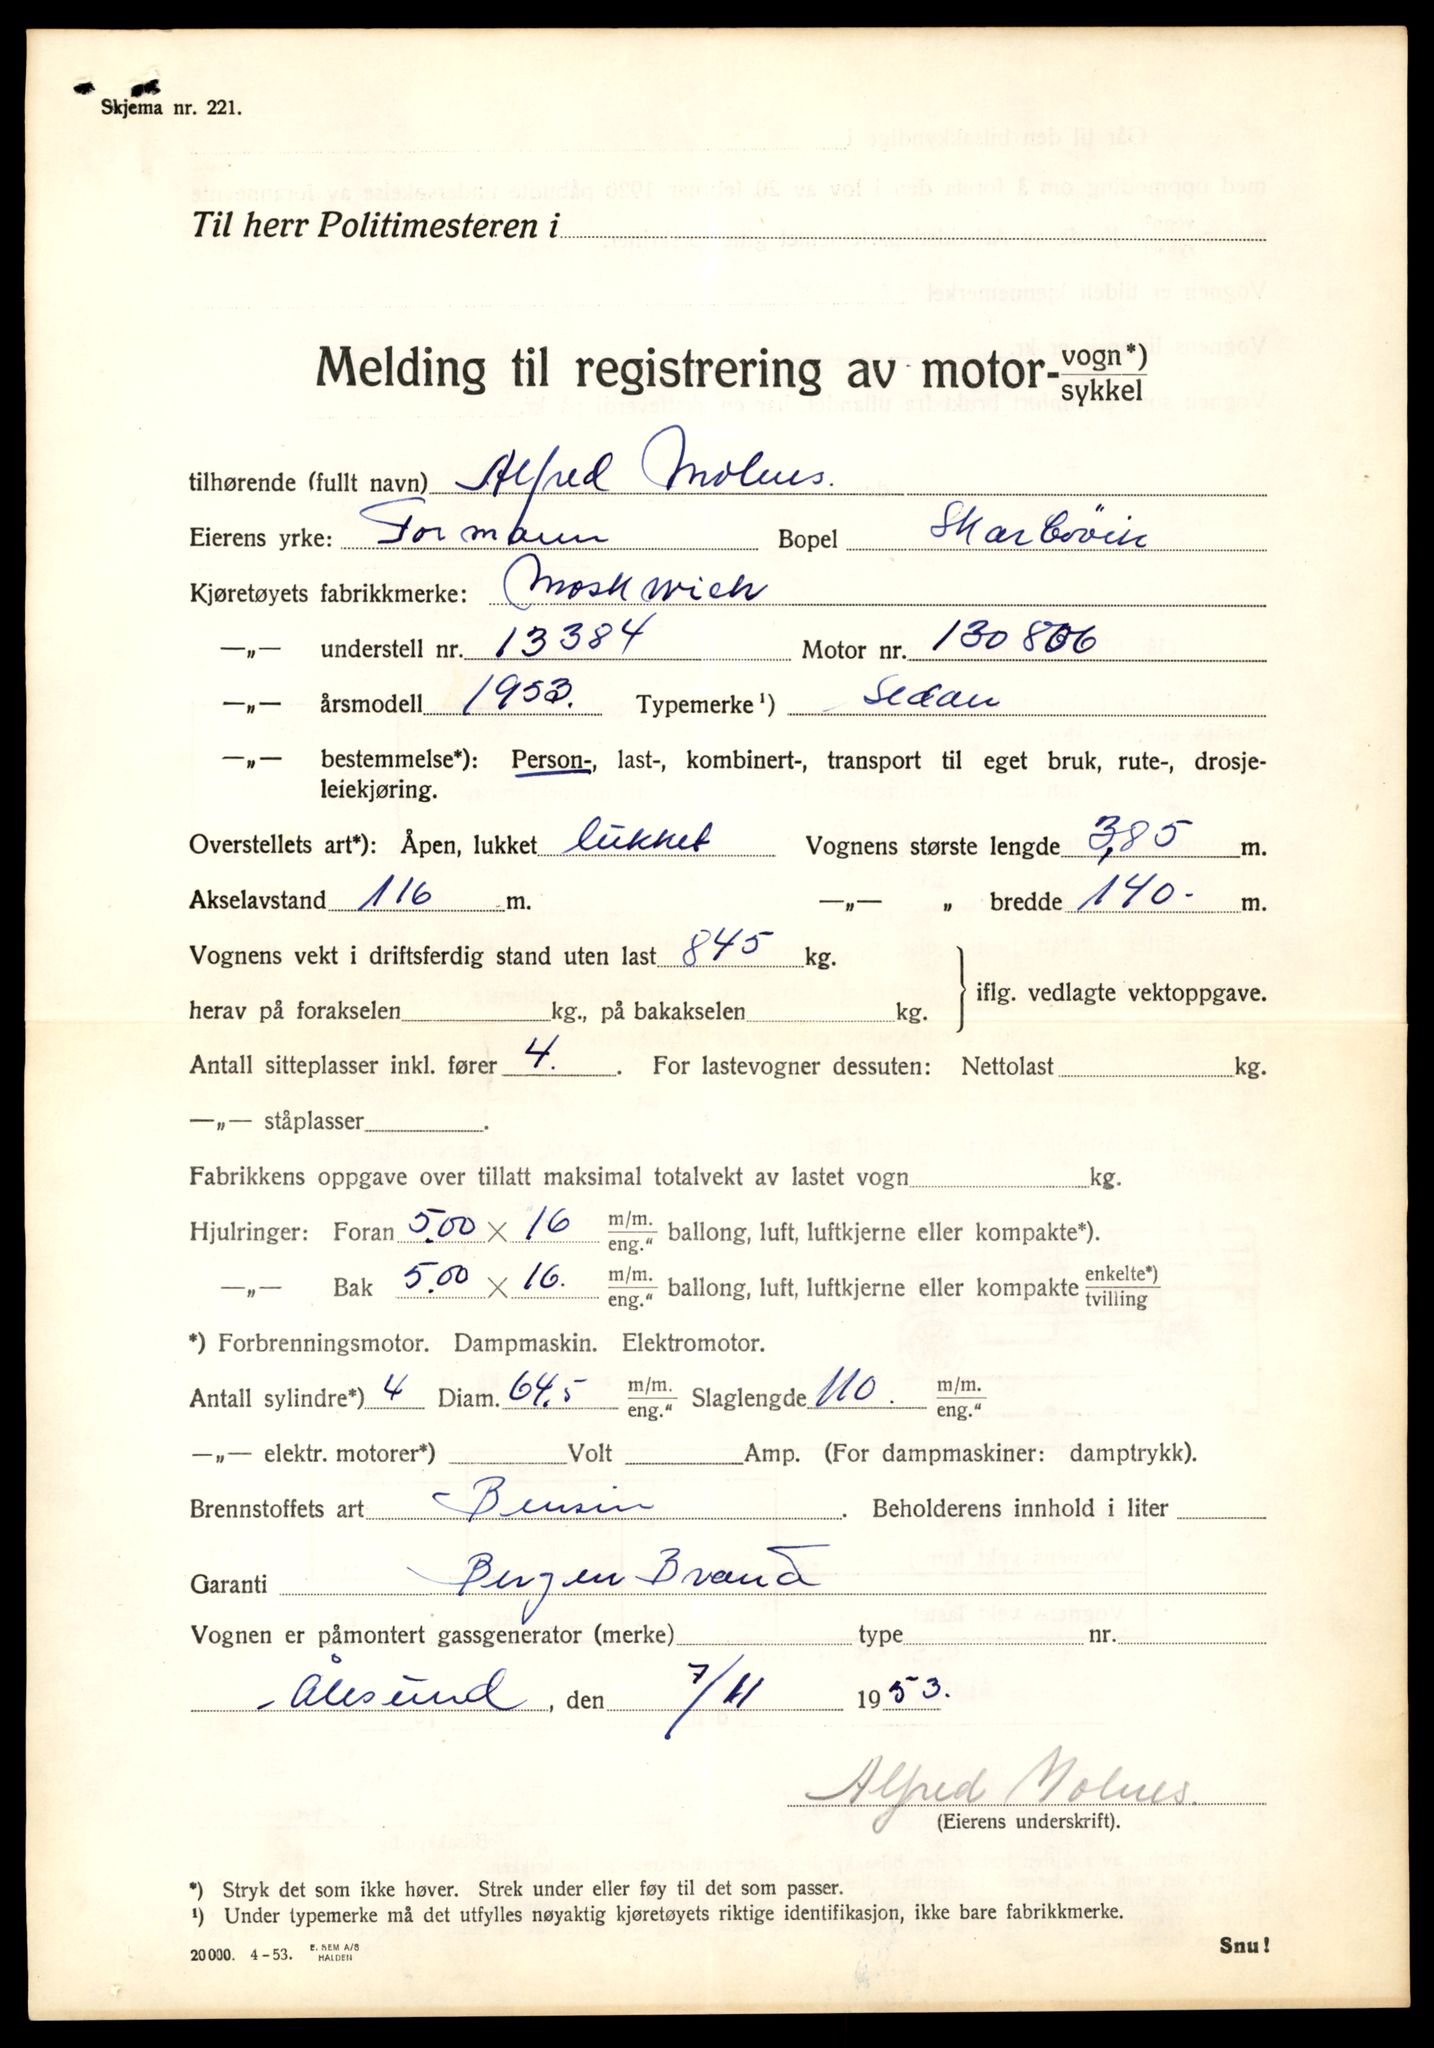 Skjema nr. 221.
Til herr Politimesteren i
Melding til registrering av motor-vogn*)/sykkel
tilhørende (fullt navn) Alfred Molnes.
Eierens yrke: Formann Bopel Skarbövik
Kjøretøyets fabrikkmerke: Moskwich
—„— understell nr. 13384 Motor nr. 130806
—„— årsmodell 1953. Typemerke¹) Sedan
—„— bestemmelse*): Person-, last-, kombinert-, transport til eget bruk, rute-, drosje-
leiekjøring.
Overstellets art*): Åpen, lukket lukket Vognens største lengde 3,85 m.
Akselavstand 116 m. —„— „ bredde 140- m.
Vognens vekt i driftsferdig stand uten last 845 kg.
herav på forakselen kg., på bakakselen kg. iflg. vedlagte vektoppgave.
Antall sitteplasser inkl. fører 4. . For lastevogner dessuten: Nettolast kg.
—„— ståplasser .
Fabrikkens oppgave over tillatt maksimal totalvekt av lastet vogn kg.
Hjulringer: Foran 5.00 × 16 m/m./eng.“ ballong, luft, luftkjerne eller kompakte*).
—„— Bak 5.00 × 16. m/m./eng.“ ballong, luft, luftkjerne eller kompakte enkelte*)/tvilling
*) Forbrenningsmotor. Dampmaskin. Elektromotor.
Antall sylindre*) 4 Diam. 64,5 m/m./eng.“ Slaglengde 110. m/m./eng.“
—„— elektr. motorer*) Volt Amp. (For dampmaskiner: damptrykk).
Brennstoffets art Bensin . Beholderens innhold i liter
Garanti Bergen Brand
Vognen er påmontert gassgenerator (merke) type nr.
Ålesund, den 7/11 1953.
Alfred Molnes.
(Eierens underskrift).
*) Stryk det som ikke høver. Strek under eller føy til det som passer.
¹) Under typemerke må det utfylles nøyaktig kjøretøyets riktige identifikasjon, ikke bare fabrikkmerke.
20000. 4-53. E. SEM A/S HALDEN
Snu!